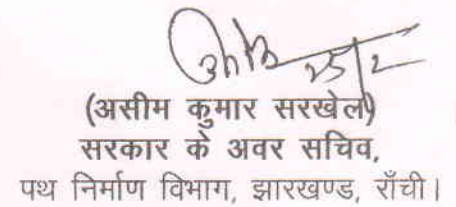 25/2
(असीम कुमार सरखेल)
सरकार के अवर सचिव,
पथ निर्माण विभाग, झारखण्ड, राँची।